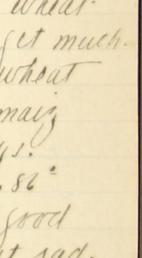 wheat
get much
wheat
maiz
gs.
. 86°
good
t sad.